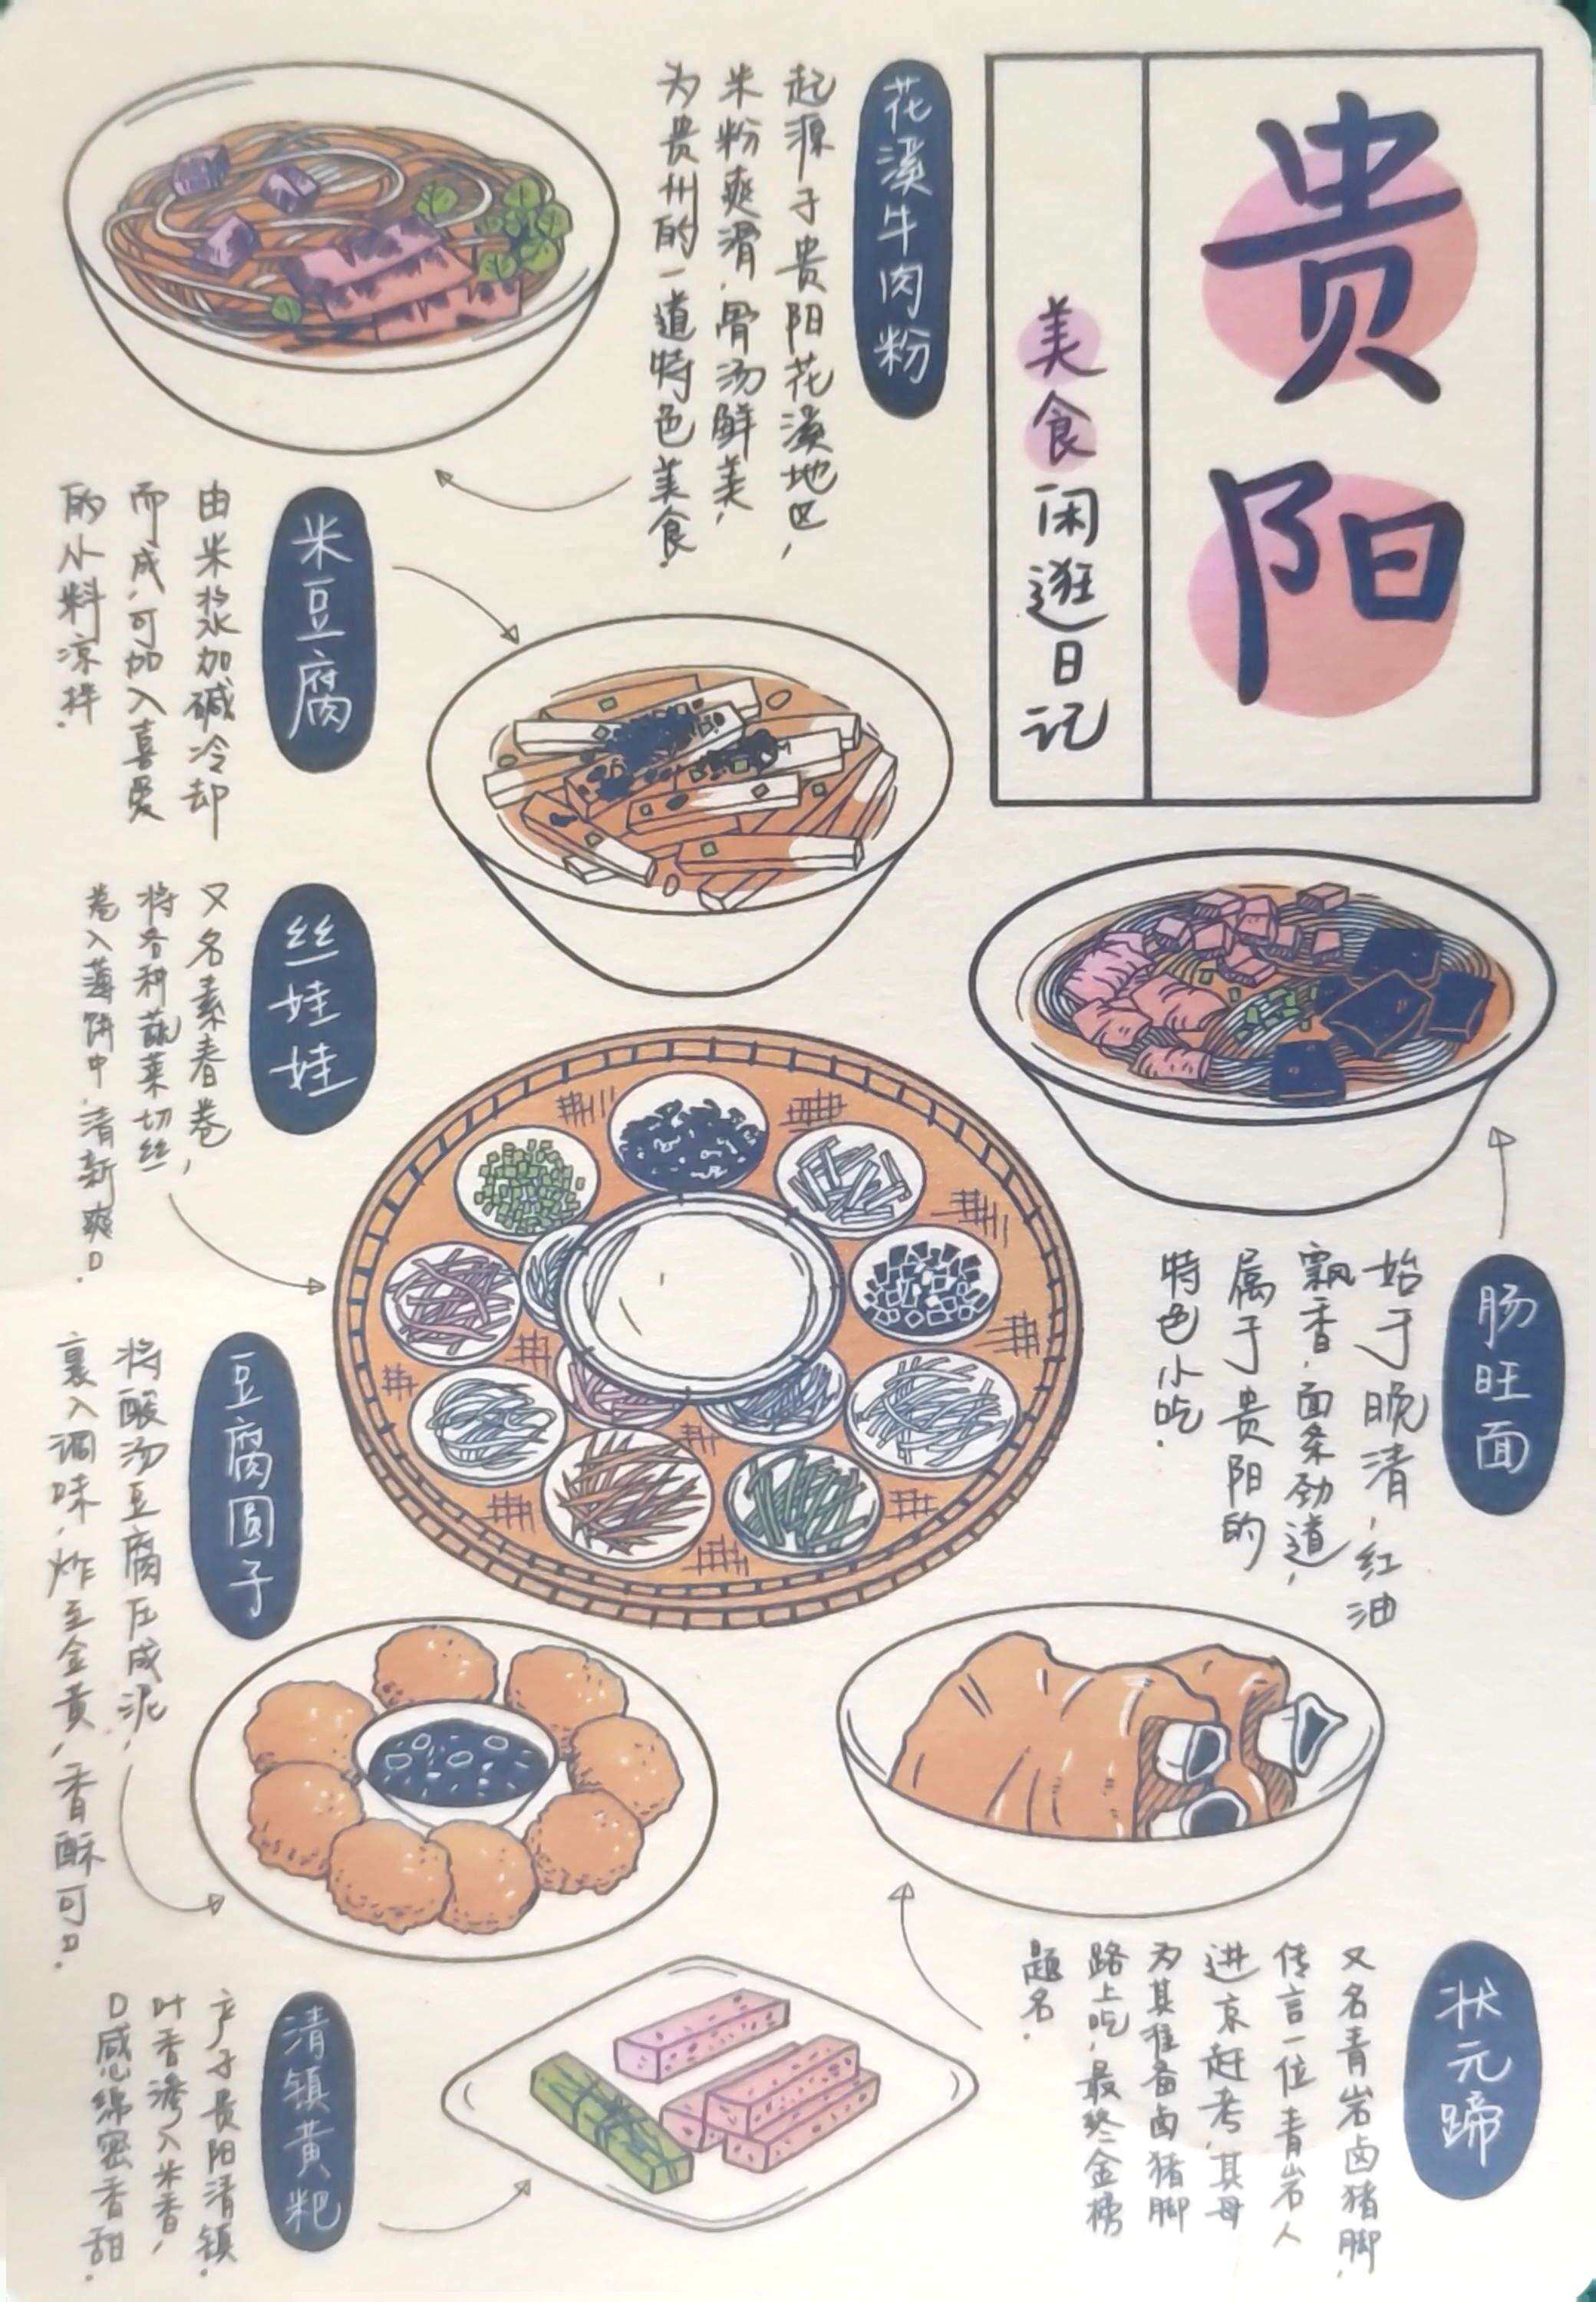 贵阳
美食闲逛日记
花溪牛肉粉
起源于贵阳花溪地区，
米粉爽滑，骨汤鲜美，
为贵州的一道特色美食.
米豆腐
由米浆加碱冷却
而成，可加入喜爱
的小料凉拌.
丝娃娃
又名素春卷，
将各种蔬菜切丝
卷入薄饼中.清新爽口.
肠旺面
始于晚清，红油
飘香，面条劲道，
属于贵阳的
特色小吃.
豆腐圆子
将酸汤豆腐压成泥，
裹入调味，炸至金黄，香酥可口.
状元蹄
又名青岩卤猪脚，
传言一位青岩人
进京赶考，其母
为其准备卤猪脚
路上吃，最终金榜
题名.
清镇黄粑
产于贵阳清镇.
叶香渗入米香，
口感绵密香甜.